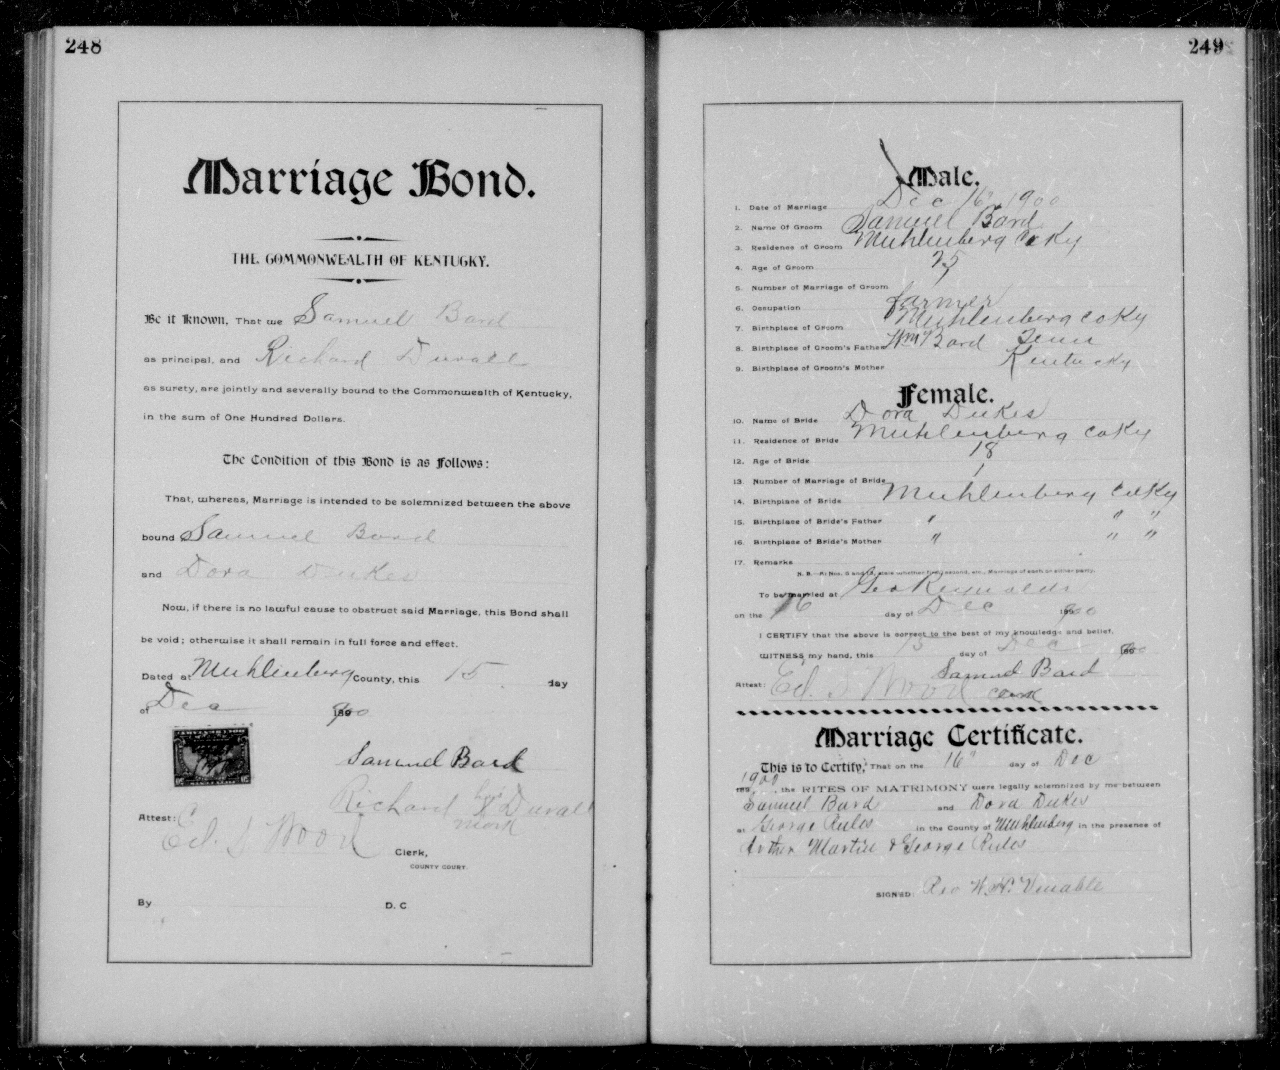 248
Marriage Bond.
THE COMMONWEALTH OF KENTUCKY.
Be it Known, That we Samuel Bard
as principal, and Richard Duvall
as surety, are jointly and severally bound to the Commonwealth of Kentucky,
in the sum of One Hundred Dollars.
The Condition of this Bond is as Follows:
That, whereas, Marriage is intended to be solemnized between the above
bound Samuel Bard
and Dora Dukes
Now, if there is no lawful cause to obstruct said Marriage, this Bond shall
be void; otherwise it shall remain in full force and effect.
Dated at Muhlenberg County, this 15 day
of Dec 1900
Samuel Bard
Richard his X mark Duvall
Attest:
Ed. S Wood
Clerk,
COUNTY COURT.
By D. C
249
Male.
1. Date of Marriage Dec 16" 1900
2. Name Of Groom Samuel Bard
3. Residence of Groom Muhlenberg Co Ky
4. Age of Groom 25
5. Number of Marriage of Groom 1
6. Occupation farmer
7. Birthplace of Groom Muhlenberg Co Ky
8. Birthplace of Groom's Father Wm Bard Tenn
9. Birthplace of Groom's Mother Kentucky
Female.
10. Name of Bride Dora Dukes
11. Residence of Bride Muhlenberg Co Ky
12. Age of Bride 18
13. Number of Marriage of Bride 1
14. Birthplace of Bride Muhlenberg Co Ky
15. Birthplace of Bride's Father " " "
16. Birthplace of Bride's Mother " " "
17. Remarks
N. B.—At Nos. 5 and 13, state whether first, second, etc., Marriage of each or either party.
To be married at Geo Reynolds
on the 16 day of Dec 1900
I CERTIFY that the above is correct to the best of my knowledge and belief.
WITNESS my hand, this 15 day of Dec 1900
Samuel Bard
Attest: Ed. S Wood Clerk
Marriage Certificate.
This is to Certify, That on the 16" day of Dec
1900, the RITES OF MATRIMONY were legally solemnized by me between
Samuel Bard and Dora Dukes
at George Rules in the County of Muhlenberg in the presence of
Arthur Martin & George Rules
SIGNED Rev W. P. Venable